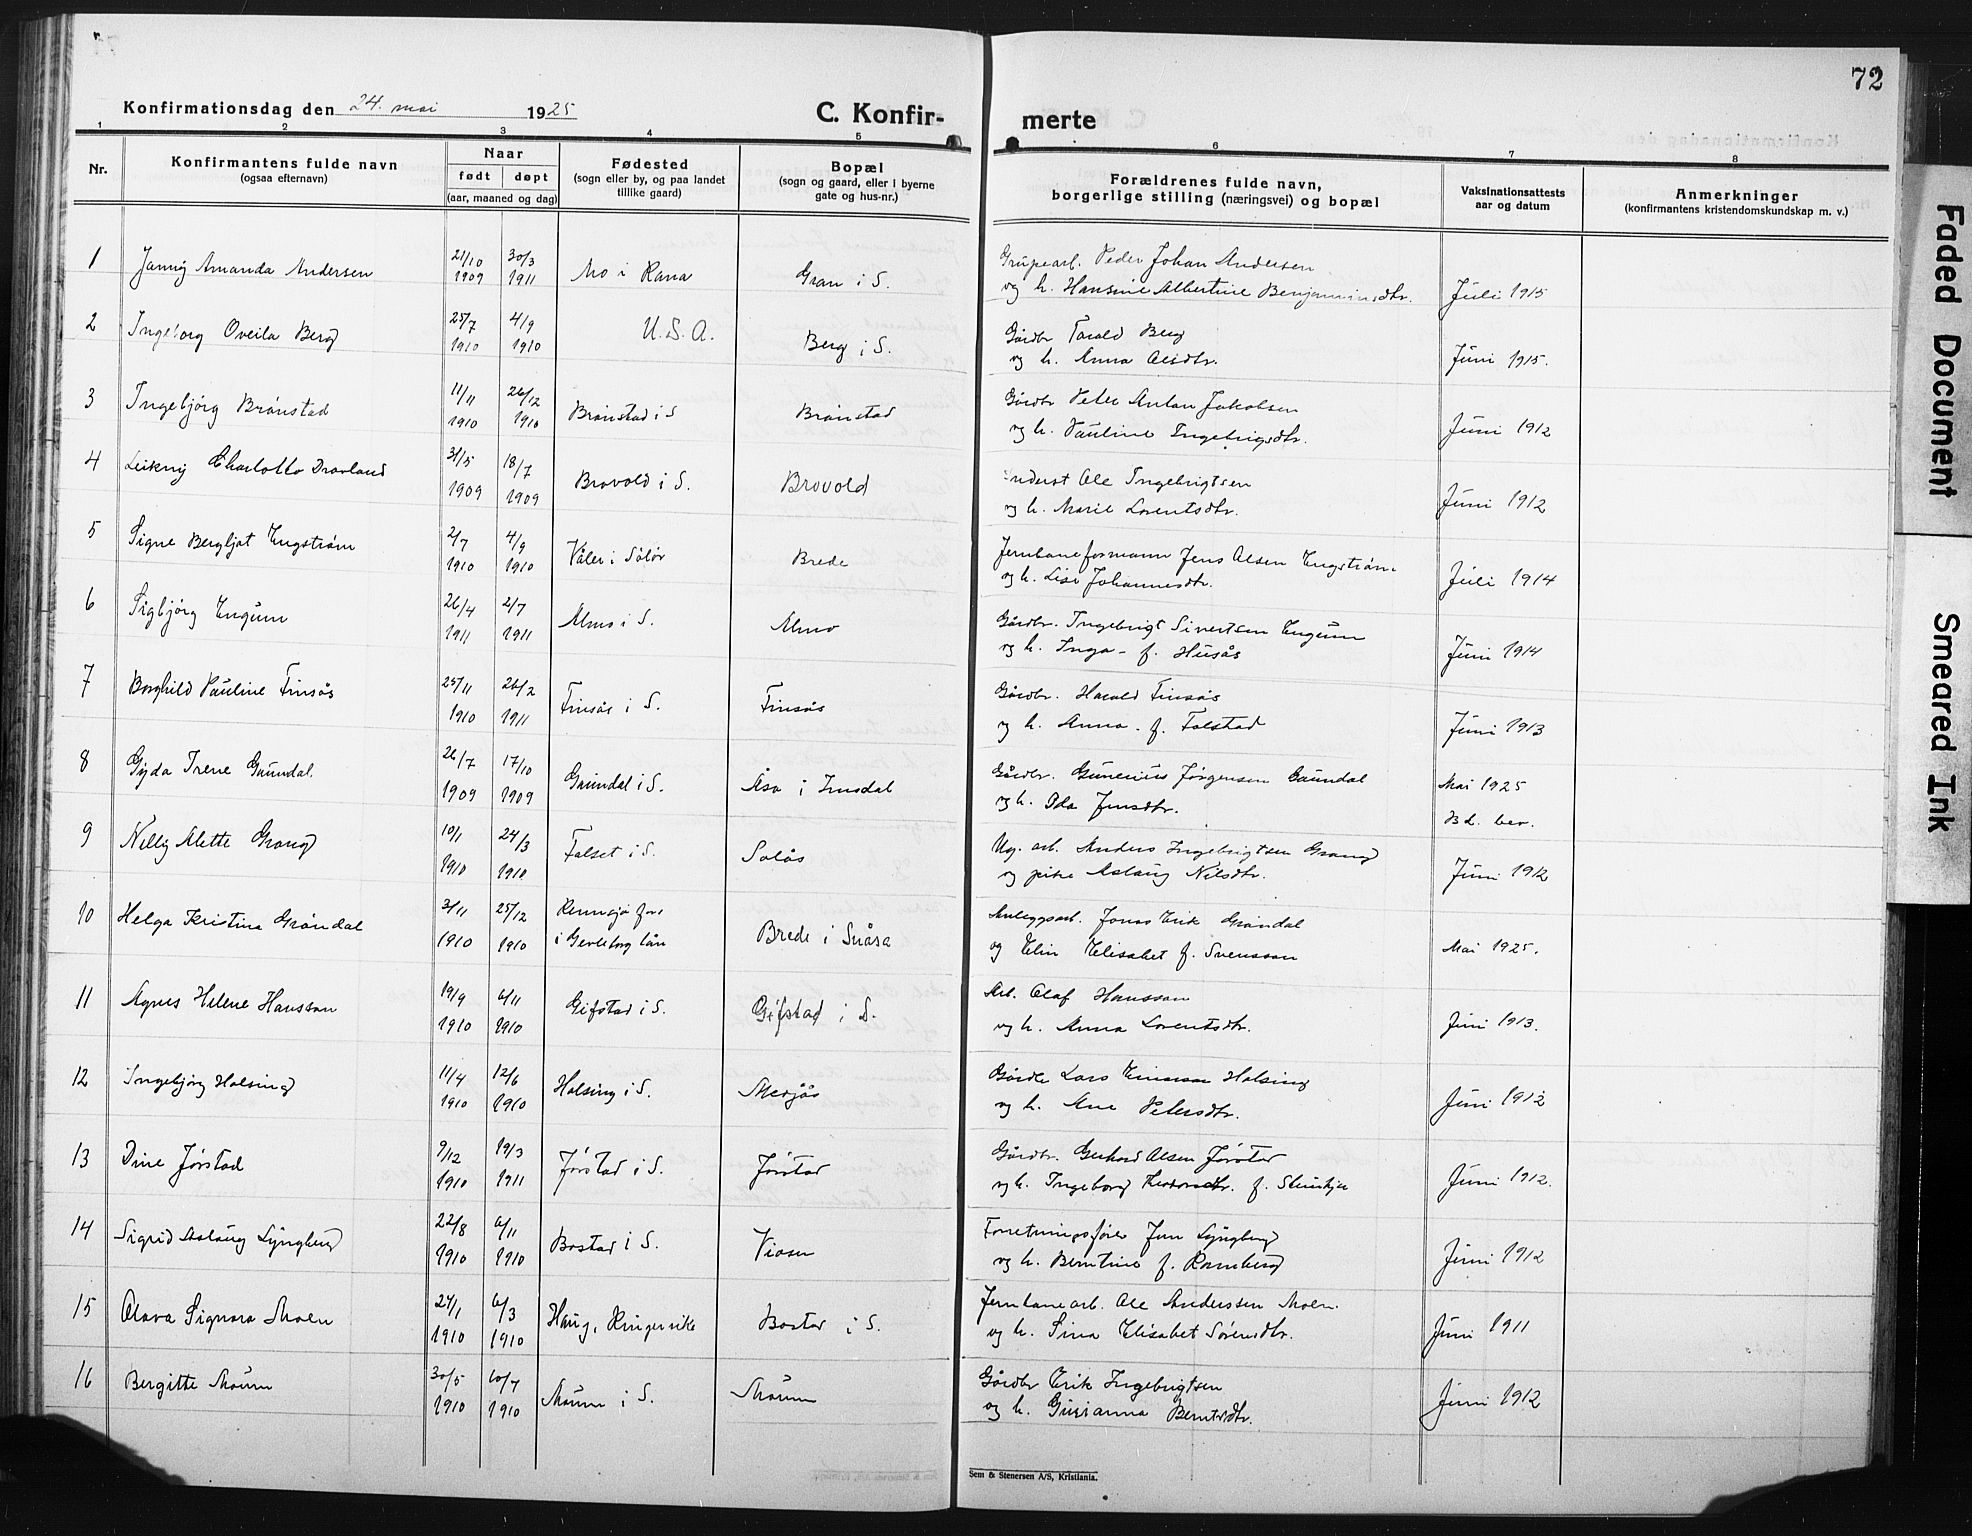 72
Konfirmationsdag den 24. mai 1925
C. Konfir-
merte
1 2 3 4 5 6 7 8
Nr.
Konfirmantens fulde navn
(ogsaa efternavn)
Naar
født døpt
(aar, maaned og dag)
Fødested
(sogn eller by, og paa landet
tillike gaard)
Bopæl
(sogn og gaard, eller i byerne
gate og hus-nr.)
Forældrenes fulde navn,
borgerlige stilling (næringsvei) og bopæl
Vaksinationsattests
aar og datum
Anmerkninger
(konfirmantens kristendomskundskap m. v.)
1 Jannig Amanda Andersen 21/10 1909 30/3 1911 Mo i Rana Gran i S.
Grupearb. Peder Johan Andersen
og h. Hansine Albertine Benjaminsdtr. Juli 1915
2 Ingeborg Oveila Berg 25/7 1910 4/9 1910 U.S.A. Berg i S.
Gårdbr Torald Berg
og h. Anna Olsdtr. Juni 1915.
3 Ingebjørg Brønstad 11/11 1910 26/12 1910 Brønstad i S Brønstad
Gårdbr Peter Anton Jakobsen
og h. Pauline Ingebrigsdtr. Juni 1912
4 Leikny Charlotte Dravland 31/5 1909 18/7 1909 Brovold i S. Brovold
Inderst Ole Ingebrigtsen
og h. Marie Lorentsdtr. Juni 1912
5 Signe Bergljot Engstrøm 2/7 1910 4/9 1910 Våler i Solør Brede
Jernbaneformann Jens Olsen Engstrøm
og h. Lise Johannesdtr. Juli 1914
6 Sigbjørg Engum 26/4 1911 2/7 1911 Almo i S. Almo
Gårdbr. Ingebrigt Sivertsen Engum
og h. Inga - f. Husås Juni 1914
7 Borghild Pauline Finsås 25/11 1910 26/2 1911 Finsås i S. Finsås
Gårdbr. Harald Finsås
og h. Anna. f. Folstad Juni 1913
8 Gyda Irene Gaundal. 26/7 1909 17/10 1909 Gaundal i S. Åsa i Imsdal
Gårdbr. Gunerius Jørgensen Gaundal
og h. Ida Jensdtr. Mai 1925
Bd. bev.
9 Nelly Alette Grong 10/1 1910 24/3 1910 Folset i S. Solås
Ug. arb. Anders Ingebrigtsen Grong
og pike Aslaug Nilsdtr. Juni 1912
10 Helga Kristina Grøndal 3/11 1910 25/12 1910
i Gevleborg län Brede i Snåsa
Anleggsarb. Jonas Erik Grøndal
og Elin Elisabet f. Svensson Mai 1925.
11 Agnes Helene Hansson 19/9 1910 6/11 1910 Gifstad i S. Gifstad i S.
Arb. Olaf Hansson
og h. Anna Lorentsdtr. Juni 1913.
12 Ingebjørg Holsing 11/4 1910 12/6 1910 Holsing i S. Medjås
Gårdbr Lars Einarsen Holsing
og h. Ane Petersdtr. Juni 1912
13 Dine Jørstad 9/12 1910 19/3 1911 Jørstad i S. Jørstad
Gårdbr. Gerhard Olsen Jørstad
og h. Ingeborg f. Steinkjer Juni 1912.
14 Sigrid Aslaug Lyngberg 22/8 1910 6/11 1910 Bostad i S. Viosen
Forretningsfører Jon Lyngberg
og h. Berntine f. Ramberg Juni 1912
15 Olava Signora Moen 24/1 1910 6/3 1910 Haug, Ringerike Bostad i S.
Jernbanearb. Ole Anderssen Moen.
og h. Sina Elisabet Sørensdtr. Juni 1911
16 Bergitte Moum 30/5 1910 10/7 1910 Moum i S. Moum
Gårdbr Erik Ingebrigtsen
og h. Gusianna Berntsdtr. Juni 1912
Sem & Stenersen A/S, Kristiania.
Faded Document
Smeared Ink